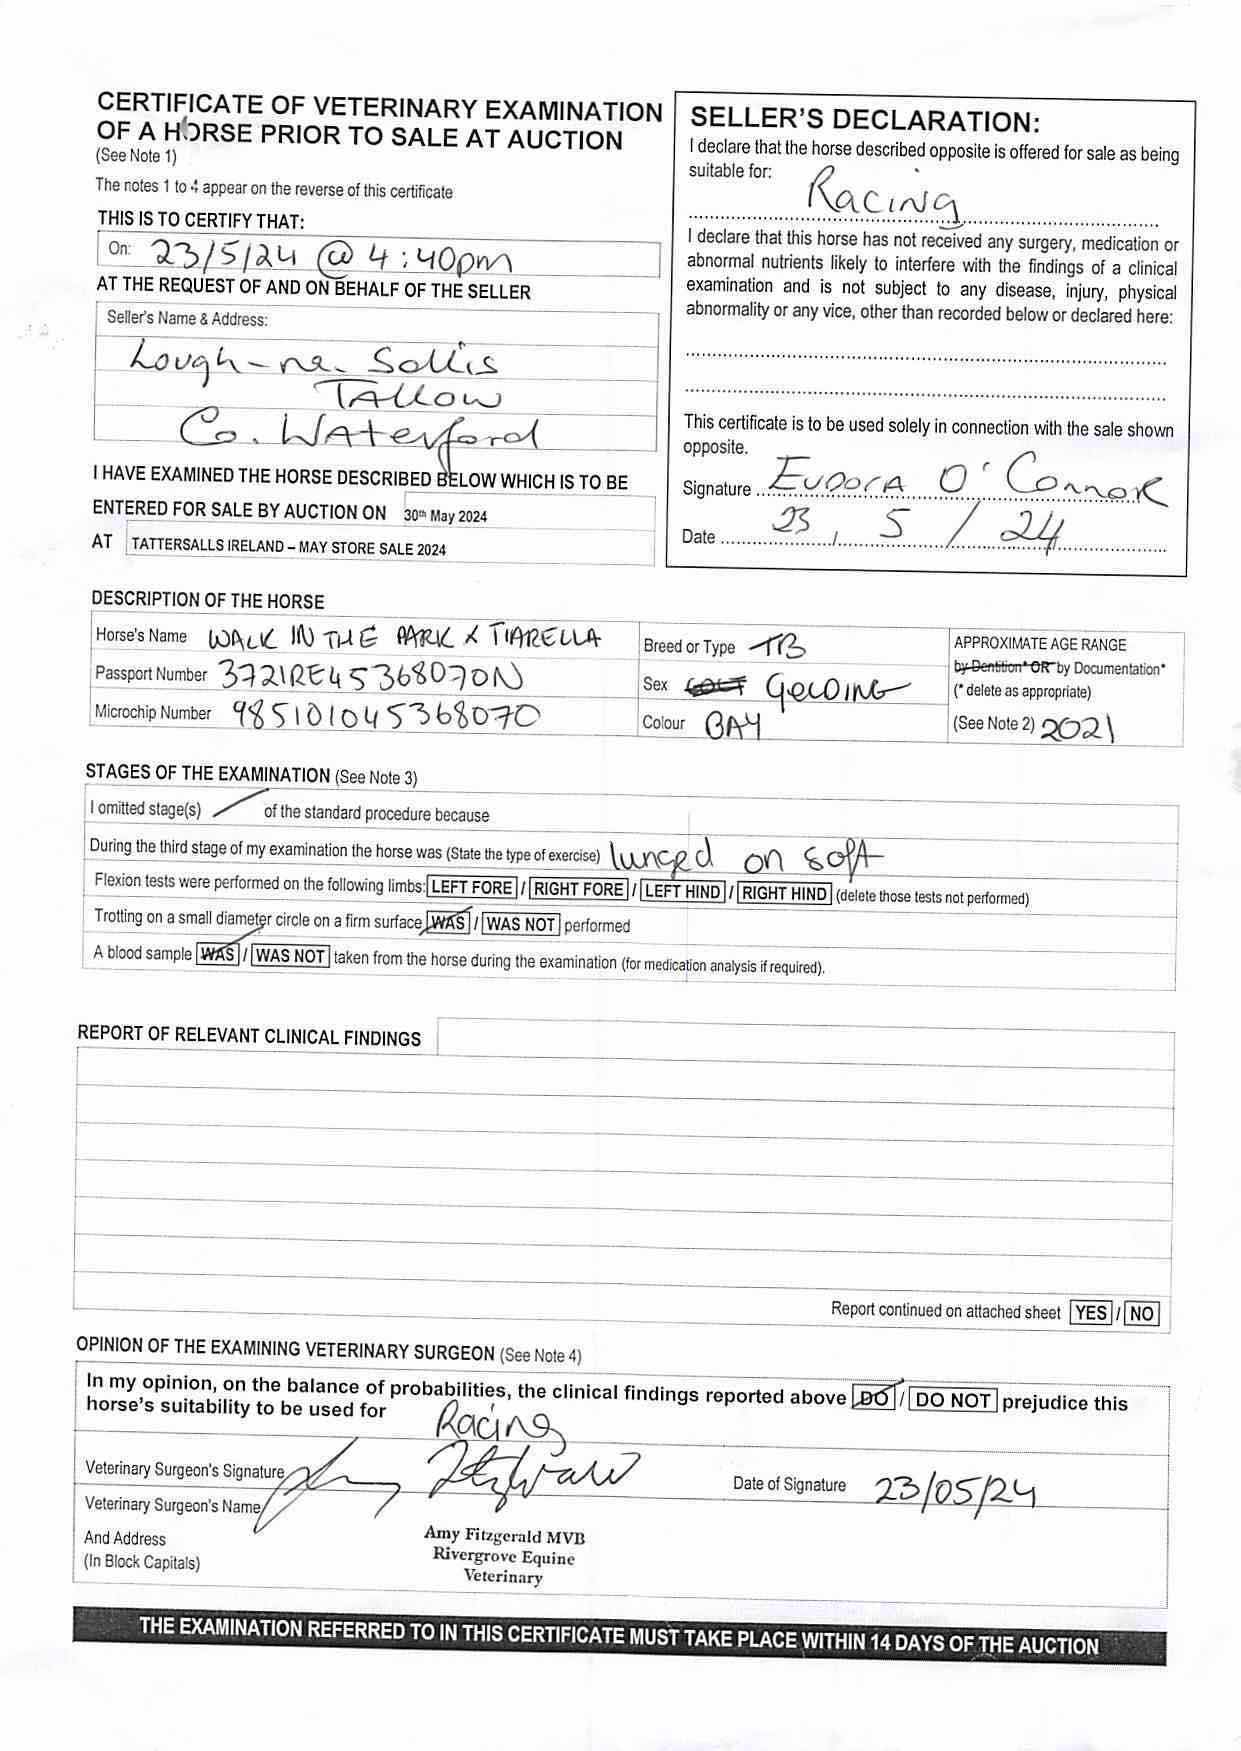 CERTIFICATE OF VETERINARY EXAMINATION
OF A HORSE PRIOR TO SALE AT AUCTION
(See Note 1)
The notes 1 to 4 appear on the reverse of this certificate
THIS IS TO CERTIFY THAT:
On: 23/5/24 @ 4:40pm
AT THE REQUEST OF AND ON BEHALF OF THE SELLER
Seller's Name & Address:
Lough-na-Sollis
TALLOW
Co. WATerford
I HAVE EXAMINED THE HORSE DESCRIBED BELOW WHICH IS TO BE
ENTERED FOR SALE BY AUCTION ON 30th May 2024
AT TATTERSALLS IRELAND – MAY STORE SALE 2024
SELLER'S DECLARATION:
I declare that the horse described opposite is offered for sale as being
suitable for:
Racing
I declare that this horse has not received any surgery, medication or
abnormal nutrients likely to interfere with the findings of a clinical
examination and is not subject to any disease, injury, physical
abnormality or any vice, other than recorded below or declared here:
This certificate is to be used solely in connection with the sale shown
opposite.
Signature EUDORA O'Connor
Date 23, 5 / 24
DESCRIPTION OF THE HORSE
Horse's Name WALK IN THE PARK X TIARELLA
Passport Number 372IRE45368070N
Microchip Number 985101045368070
Breed or Type TB
Sex COLT GELDING
Colour BAY
APPROXIMATE AGE RANGE
by Dentition* OR by Documentation*
(* delete as appropriate)
(See Note 2) 2021
STAGES OF THE EXAMINATION (See Note 3)
I omitted stage(s) / of the standard procedure because
During the third stage of my examination the horse was (State the type of exercise) lunged on soft
Flexion tests were performed on the following limbs: LEFT FORE / RIGHT FORE / LEFT HIND / RIGHT HIND (delete those tests not performed)
Trotting on a small diameter circle on a firm surface WAS / WAS NOT performed
A blood sample WAS / WAS NOT taken from the horse during the examination (for medication analysis if required).
REPORT OF RELEVANT CLINICAL FINDINGS
Report continued on attached sheet YES / NO
OPINION OF THE EXAMINING VETERINARY SURGEON (See Note 4)
In my opinion, on the balance of probabilities, the clinical findings reported above DO / DO NOT prejudice this
horse's suitability to be used for Racing
Veterinary Surgeon's Signature Amy Fitzgerald
Date of Signature 23/05/24
Veterinary Surgeon's Name
And Address
(In Block Capitals)
Amy Fitzgerald MVB
Rivergrove Equine
Veterinary
THE EXAMINATION REFERRED TO IN THIS CERTIFICATE MUST TAKE PLACE WITHIN 14 DAYS OF THE AUCTION